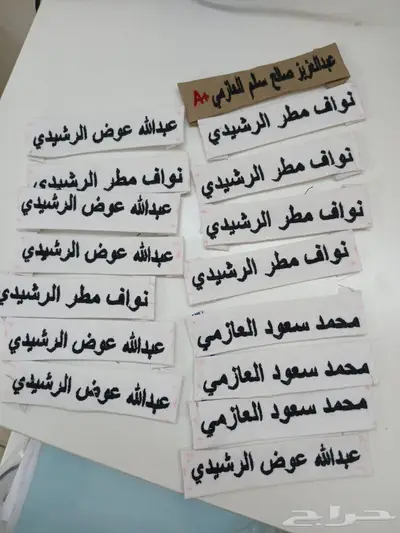 عبدالعزيز صالح سلم العازمي A+
نواف مطر الرشيدي
نواف مطر الرشيدي
نواف مطر الرشيدي
نواف مطر الرشيدي
محمد سعود العازمي
محمد سعود العازمي
محمد سعود العازمي
عبدالله عوض الرشيدي
عبدالله عوض الرشيدي
نواف مطر الرشيدي
عبدالله عوض الرشيدي
عبدالله عوض الرشيدي
نواف مطر الرشيدي
عبدالله عوض الرشيدي
عبدالله عوض الرشيدي
حراج